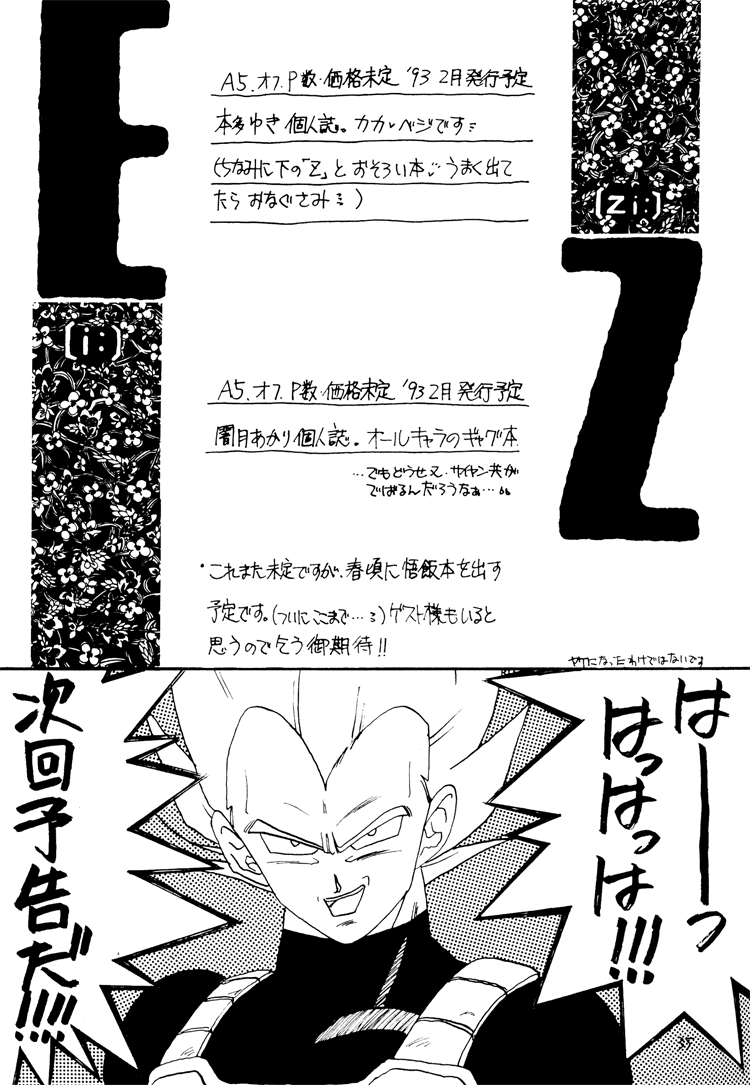 E
A5.オフ.P数・価格未定 '93 2月発行予定
本多ゆき個人誌。カカベジです
(ちなみに下の「Z」とおそろい本 うまく出て
たら おなぐさみ )
[zi:]
Z
[i:]
A5.オフ.P数・価格未定 '93 2月発行予定
闇月あかり個人誌。オールキャラのギャグ本
…でもどうせ又・サイヤン共が
でばるんだろうなぁ…
・これまた未定ですが、春頃に悟飯本を出す
予定です。(ついにここまで…)ゲスト様もいると
思うので乞う御期待!!
ヤケになったわけではないです
はーーっ
はっはっは!!!
次回予告だ!!!!
35